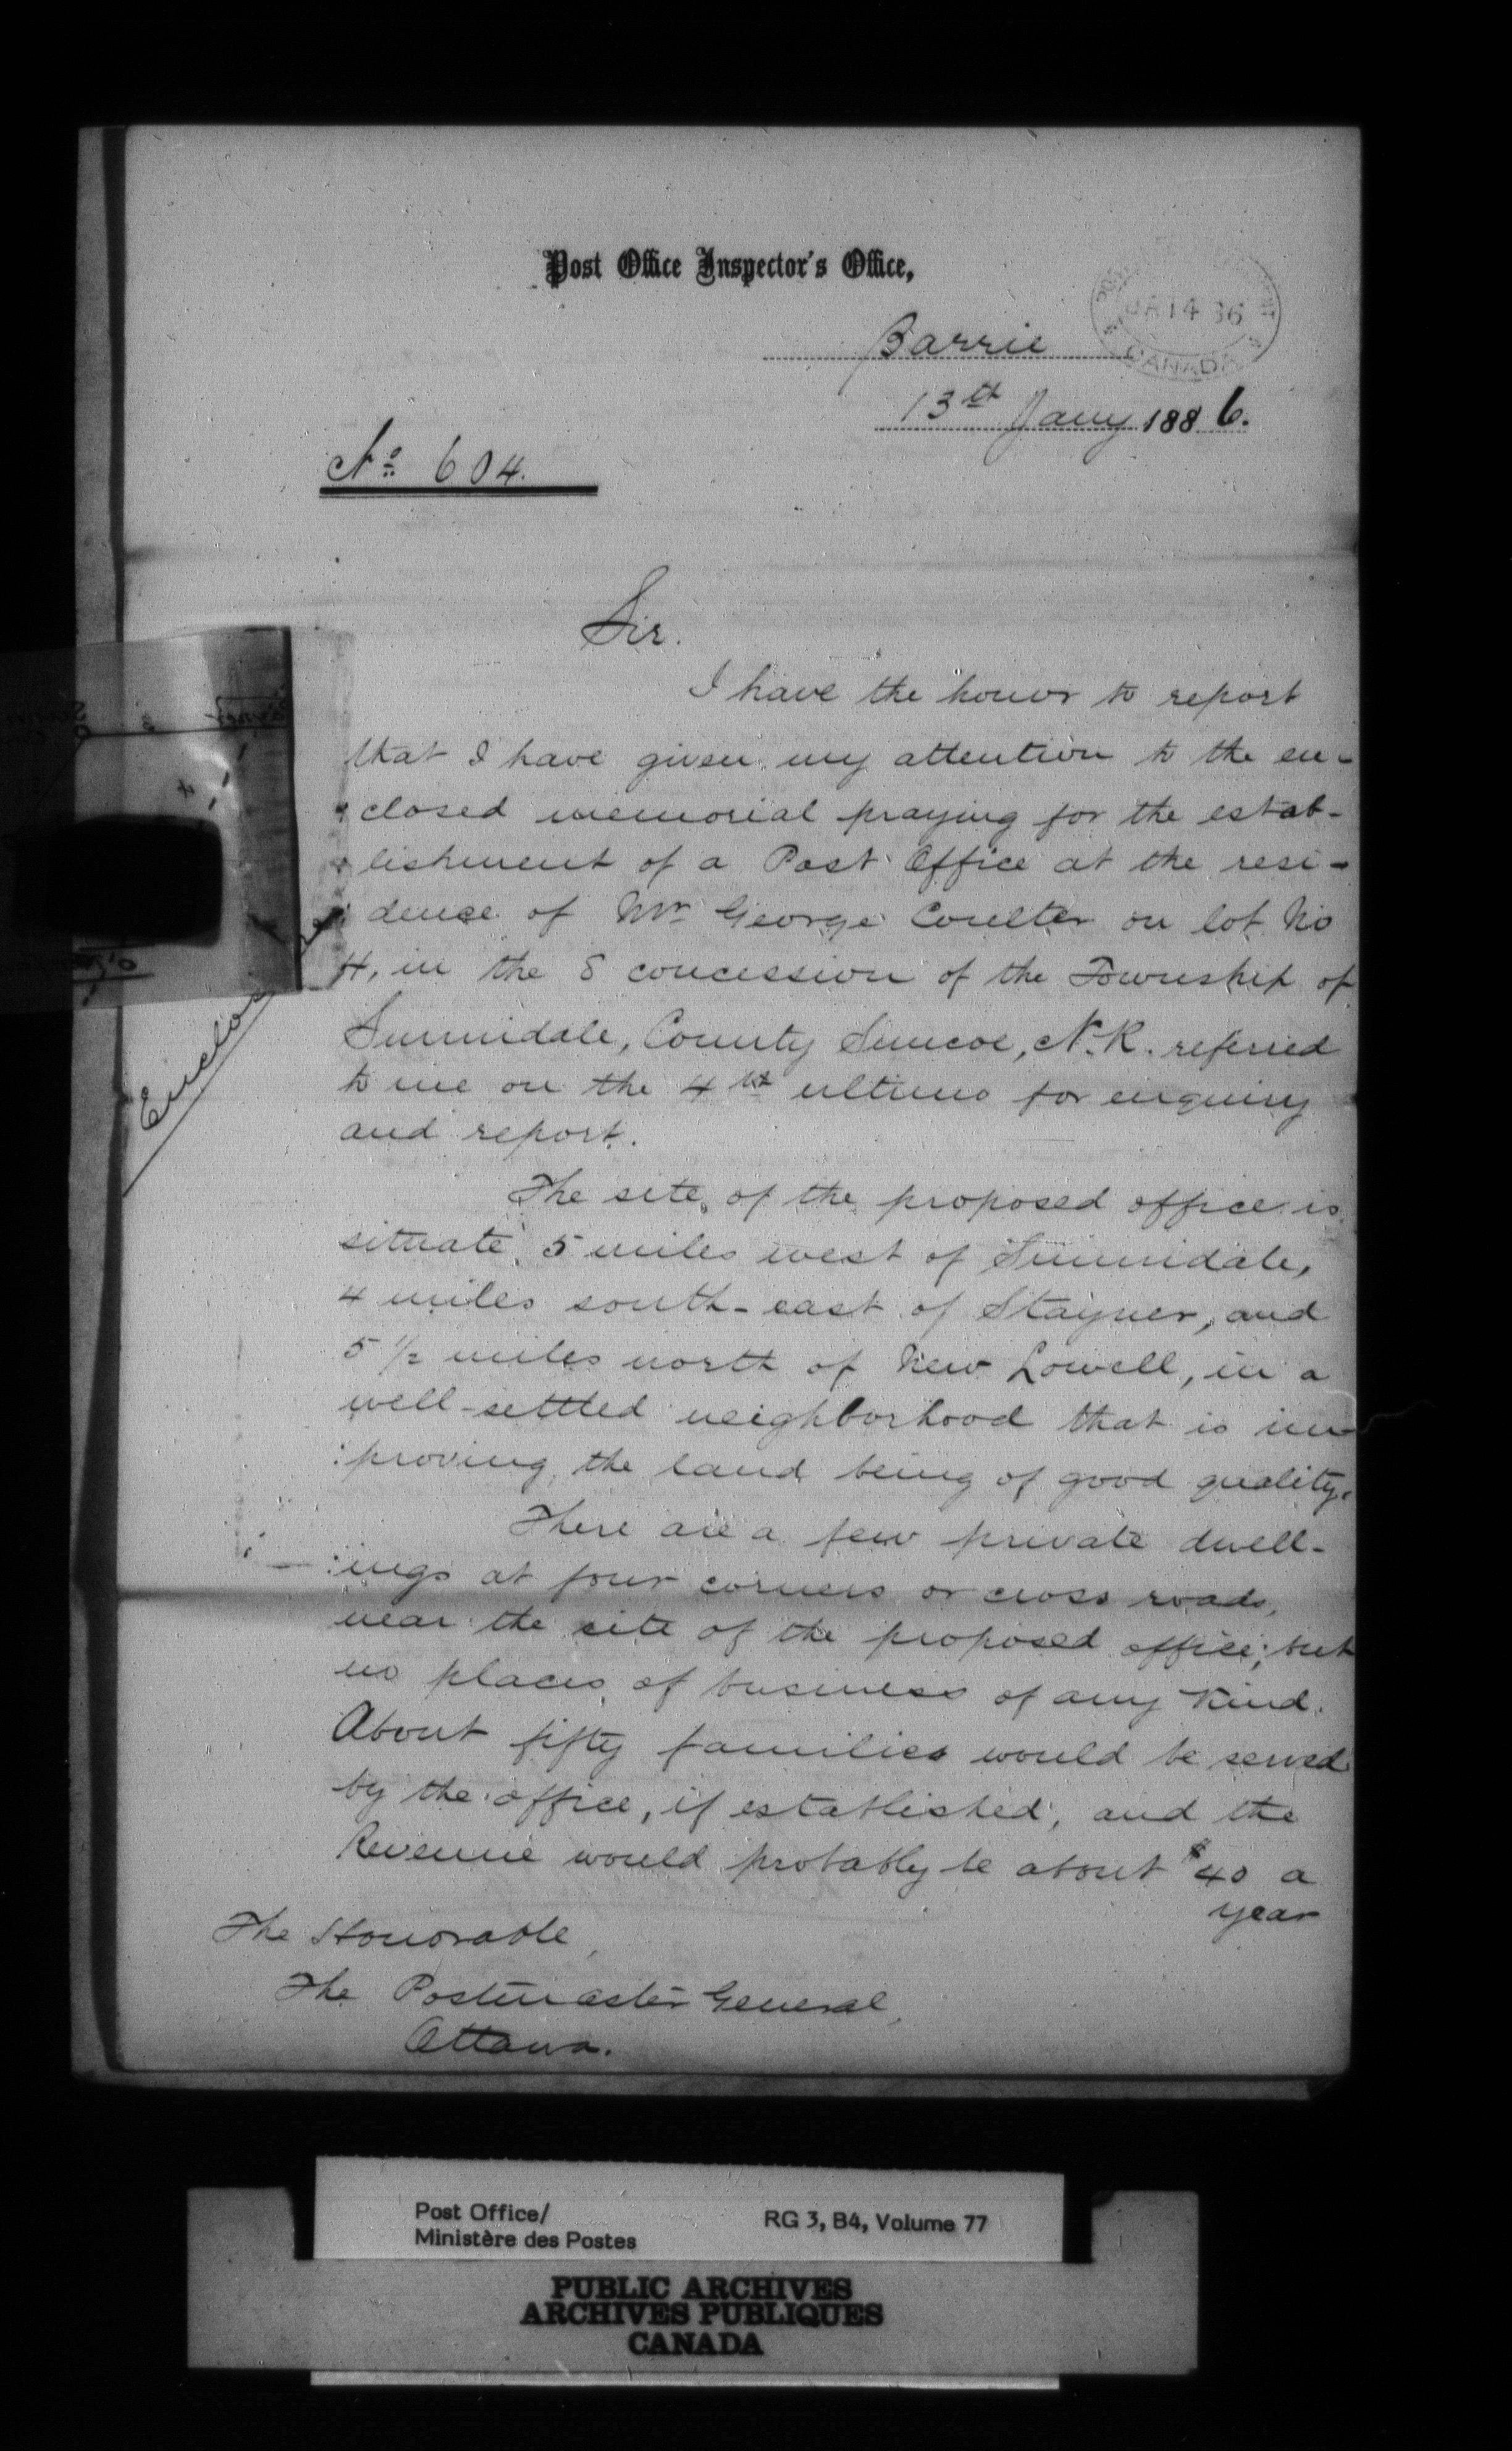 Post Office Inspector's Office,
JA 14 86
CANADA
Barrie
13th Jany 1886.
No. 604.
Sir.
I have the honor to report
that I have given my attention to the en-
closed memorial praying for the estab-
lishment of a Post Office at the resi-
dence of Mr George Coulter on lot No
4, in the 8 concession of the Township of
Sunnidale, County Simcoe, N.R. referred
to me on the 4th ultimo for enquiry
and report.
The site of the proposed office is
situate 5 miles west of Sunnidale,
4 miles south-east of Stayner, and
5 1/2 miles north of New Lowell, in a
well-settled neighborhood that is im-
:proving, the land being of good quality.
There are a few private dwell-
:ings at four corners or cross roads,
near the site of the proposed office; but
no places of business of any kind.
About fifty families would be served
by the office, if established, and the
Revenue would probably be about $40 a
year
The Honorable,
The Postmaster General,
Ottawa.
Post Office/
Ministère des Postes
RG 3, B4, Volume 77
PUBLIC ARCHIVES
ARCHIVES PUBLIQUES
CANADA